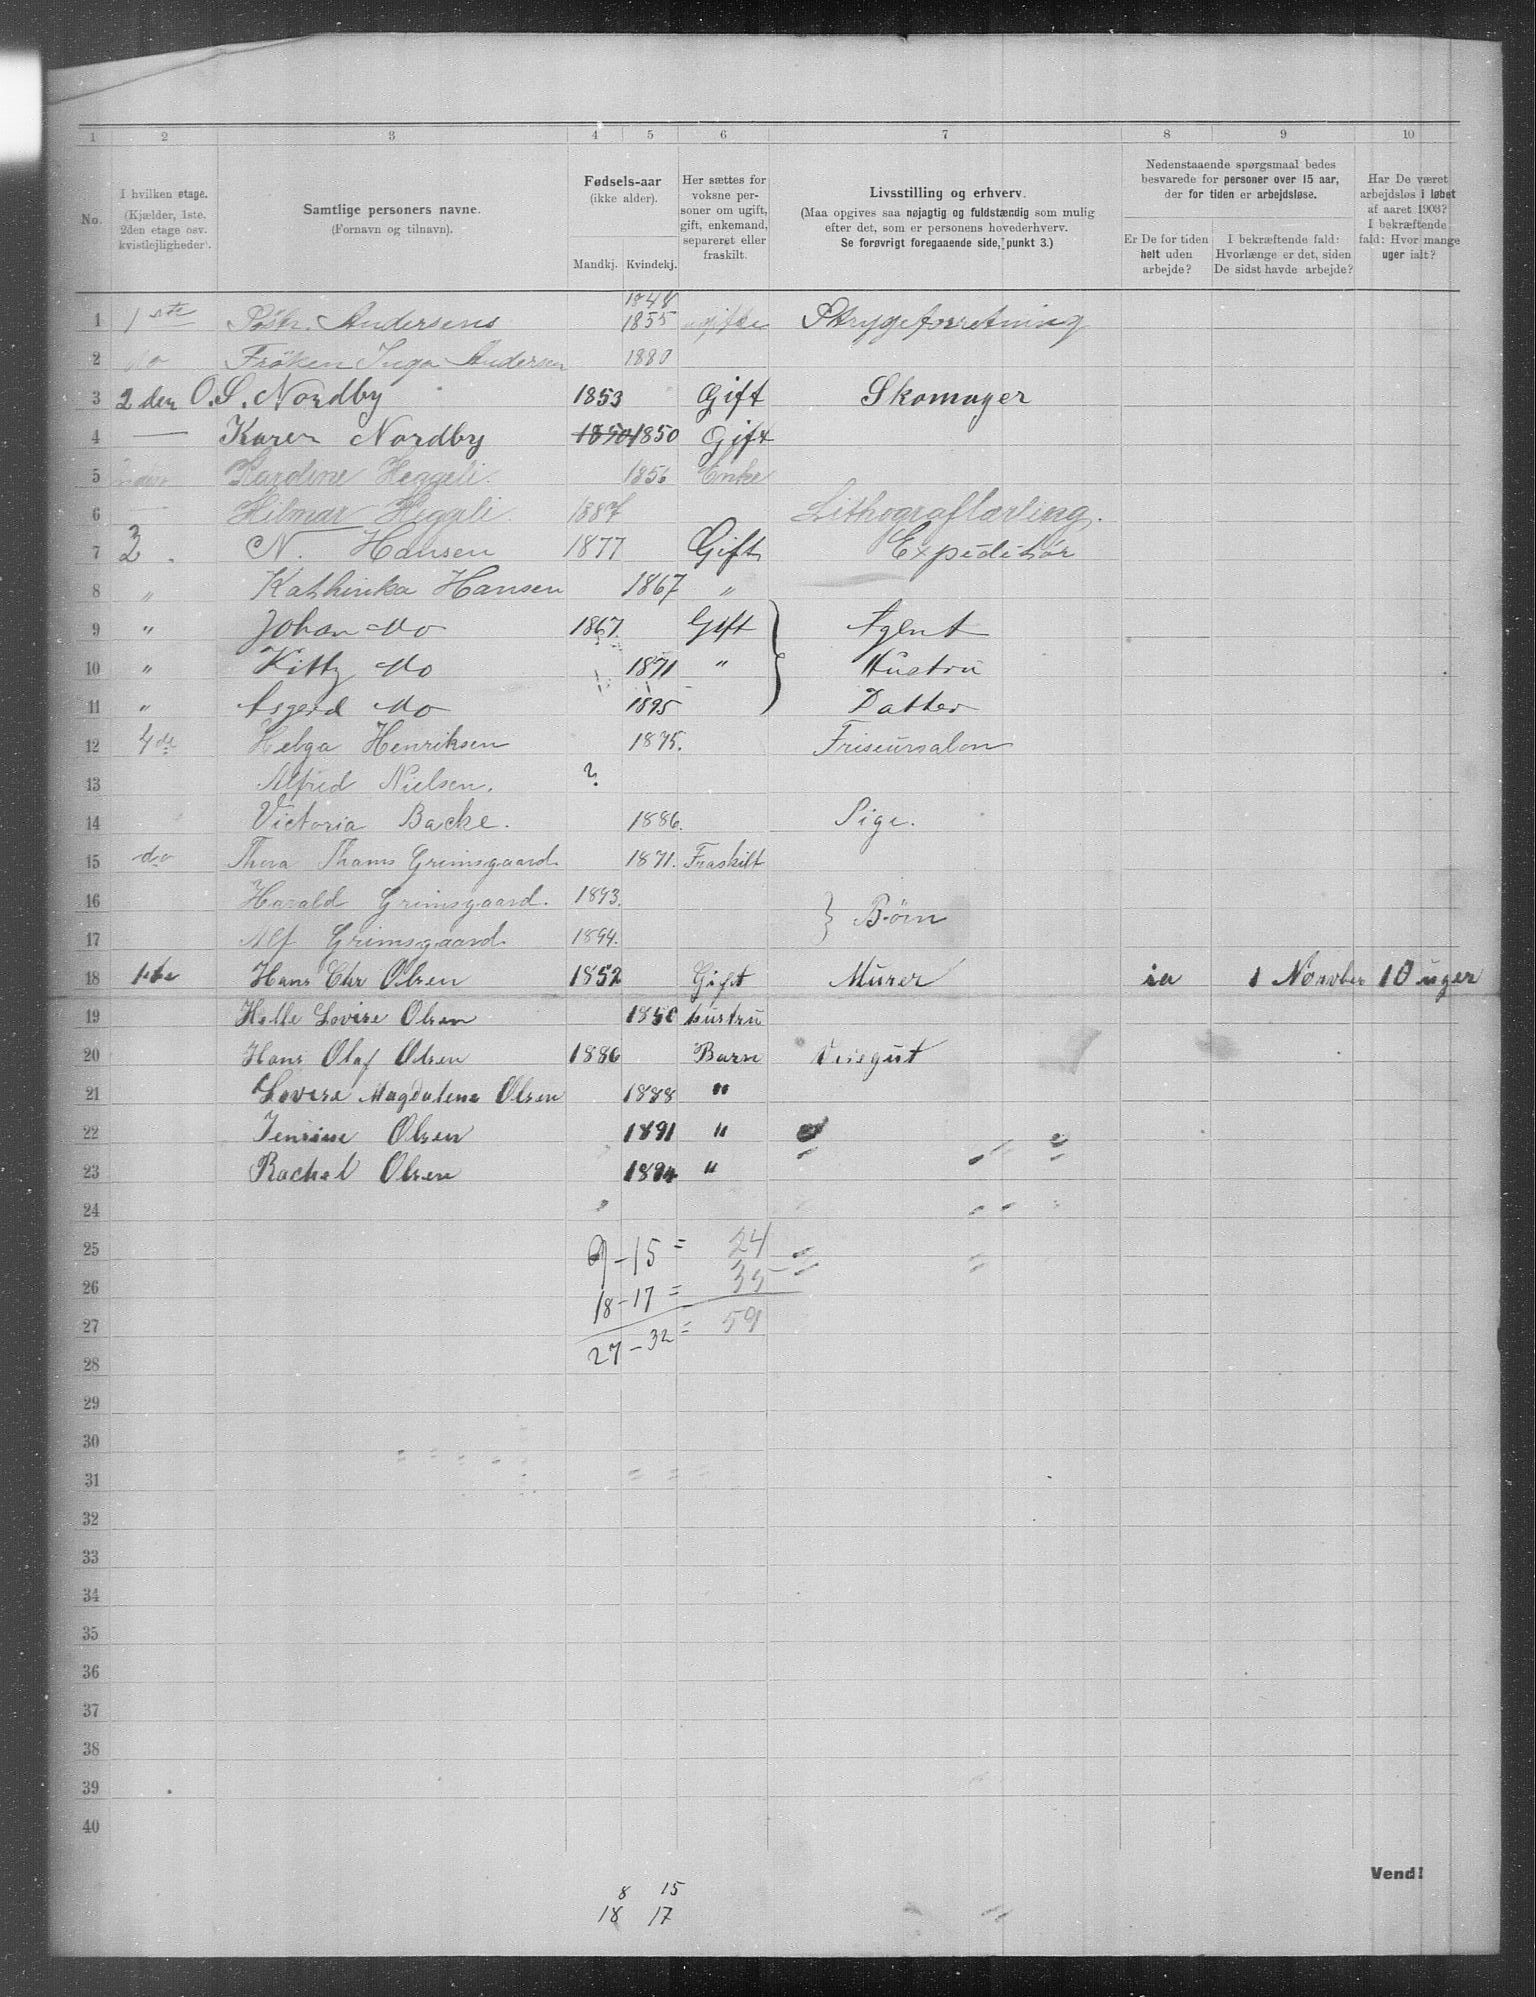 1 2 3 4 5 6 7 8 9 10
No.
I hvilken etage.
(Kjælder, 1ste.
2den etage osv.
kvistlejligheder).
Samtlige personers navne.
(Fornavn og tilnavn).
Fødsels-aar
(ikke alder).
Mandkj. Kvindekj.
Her sættes for
voksne per-
soner om ugift,
gift, enkemand,
separeret eller
fraskilt.
Livsstilling og erhverv.
(Maa opgives saa nøjagtig og fuldstændig som mulig
efter det, som er personens hovederhverv.
Se forøvrigt foregaaende side, punkt 3.)
Nedenstaaende spørgsmaal bedes
besvarede for personer over 15 aar,
der for tiden er arbejdsløse.
Er De for tiden
helt uden
arbejde?
I bekræftende fald:
Hvorlænge er det, siden
De sidst havde arbejde?
Har De været
arbejdsløs i løbet
af aaret 1903?
I bekræftende
fald: Hvor mange
uger ialt?
1848
1 1ste Andersens 1855 ugifte Strygeforretning
2 do Frøken Inga Andersen 1880
3 2den O. S. Nordby 1853 Gift Skomager
4 — Karen Nordby 1850 1850 Gift
5 Heggeli. 1856 Enke
6 — Hilmar Heggeli 1887 Lithograflærling.
7 3. N. Hansen 1877 Gift Expeditør
8 " Kathinka Hansen 1867 "
9 " Johan Mo 1867. Gift } Agent
10 " Kitty Mo 1871 " Hustru
11 " Asgerd Mo 1895 Datter
12 4de Helga Henriksen 1875. Friseursalon
13 Alfred Nielsen. ?
14 Victoria Backe. 1886. Pige.
15 do Thora Thams Grimsgaard 1871. Fraskilt
16 Harald Grimsgaard. 1893.
} Børn
17 Alf Grimsgaard 1894.
18 1ste Hans Chr Olsen 1852 Gift Murer ia 1 Novber 10 uger
19 Helle Lovise Olsen 1850 hustru
20 Hans Olaf Olsen 1886 Barn Visergut
21 Lovise Magdalene Olsen 1888 "
22 Jensine Olsen 1891 "
23 Rachel Olsen 1894 "
24
25 9 – 15 = 24
26 18 – 17 = 35
27 27 – 32 = 59
28
29
30
31
32
33
34
35
36
37
38
39
40
Vend!
8 15
18 17